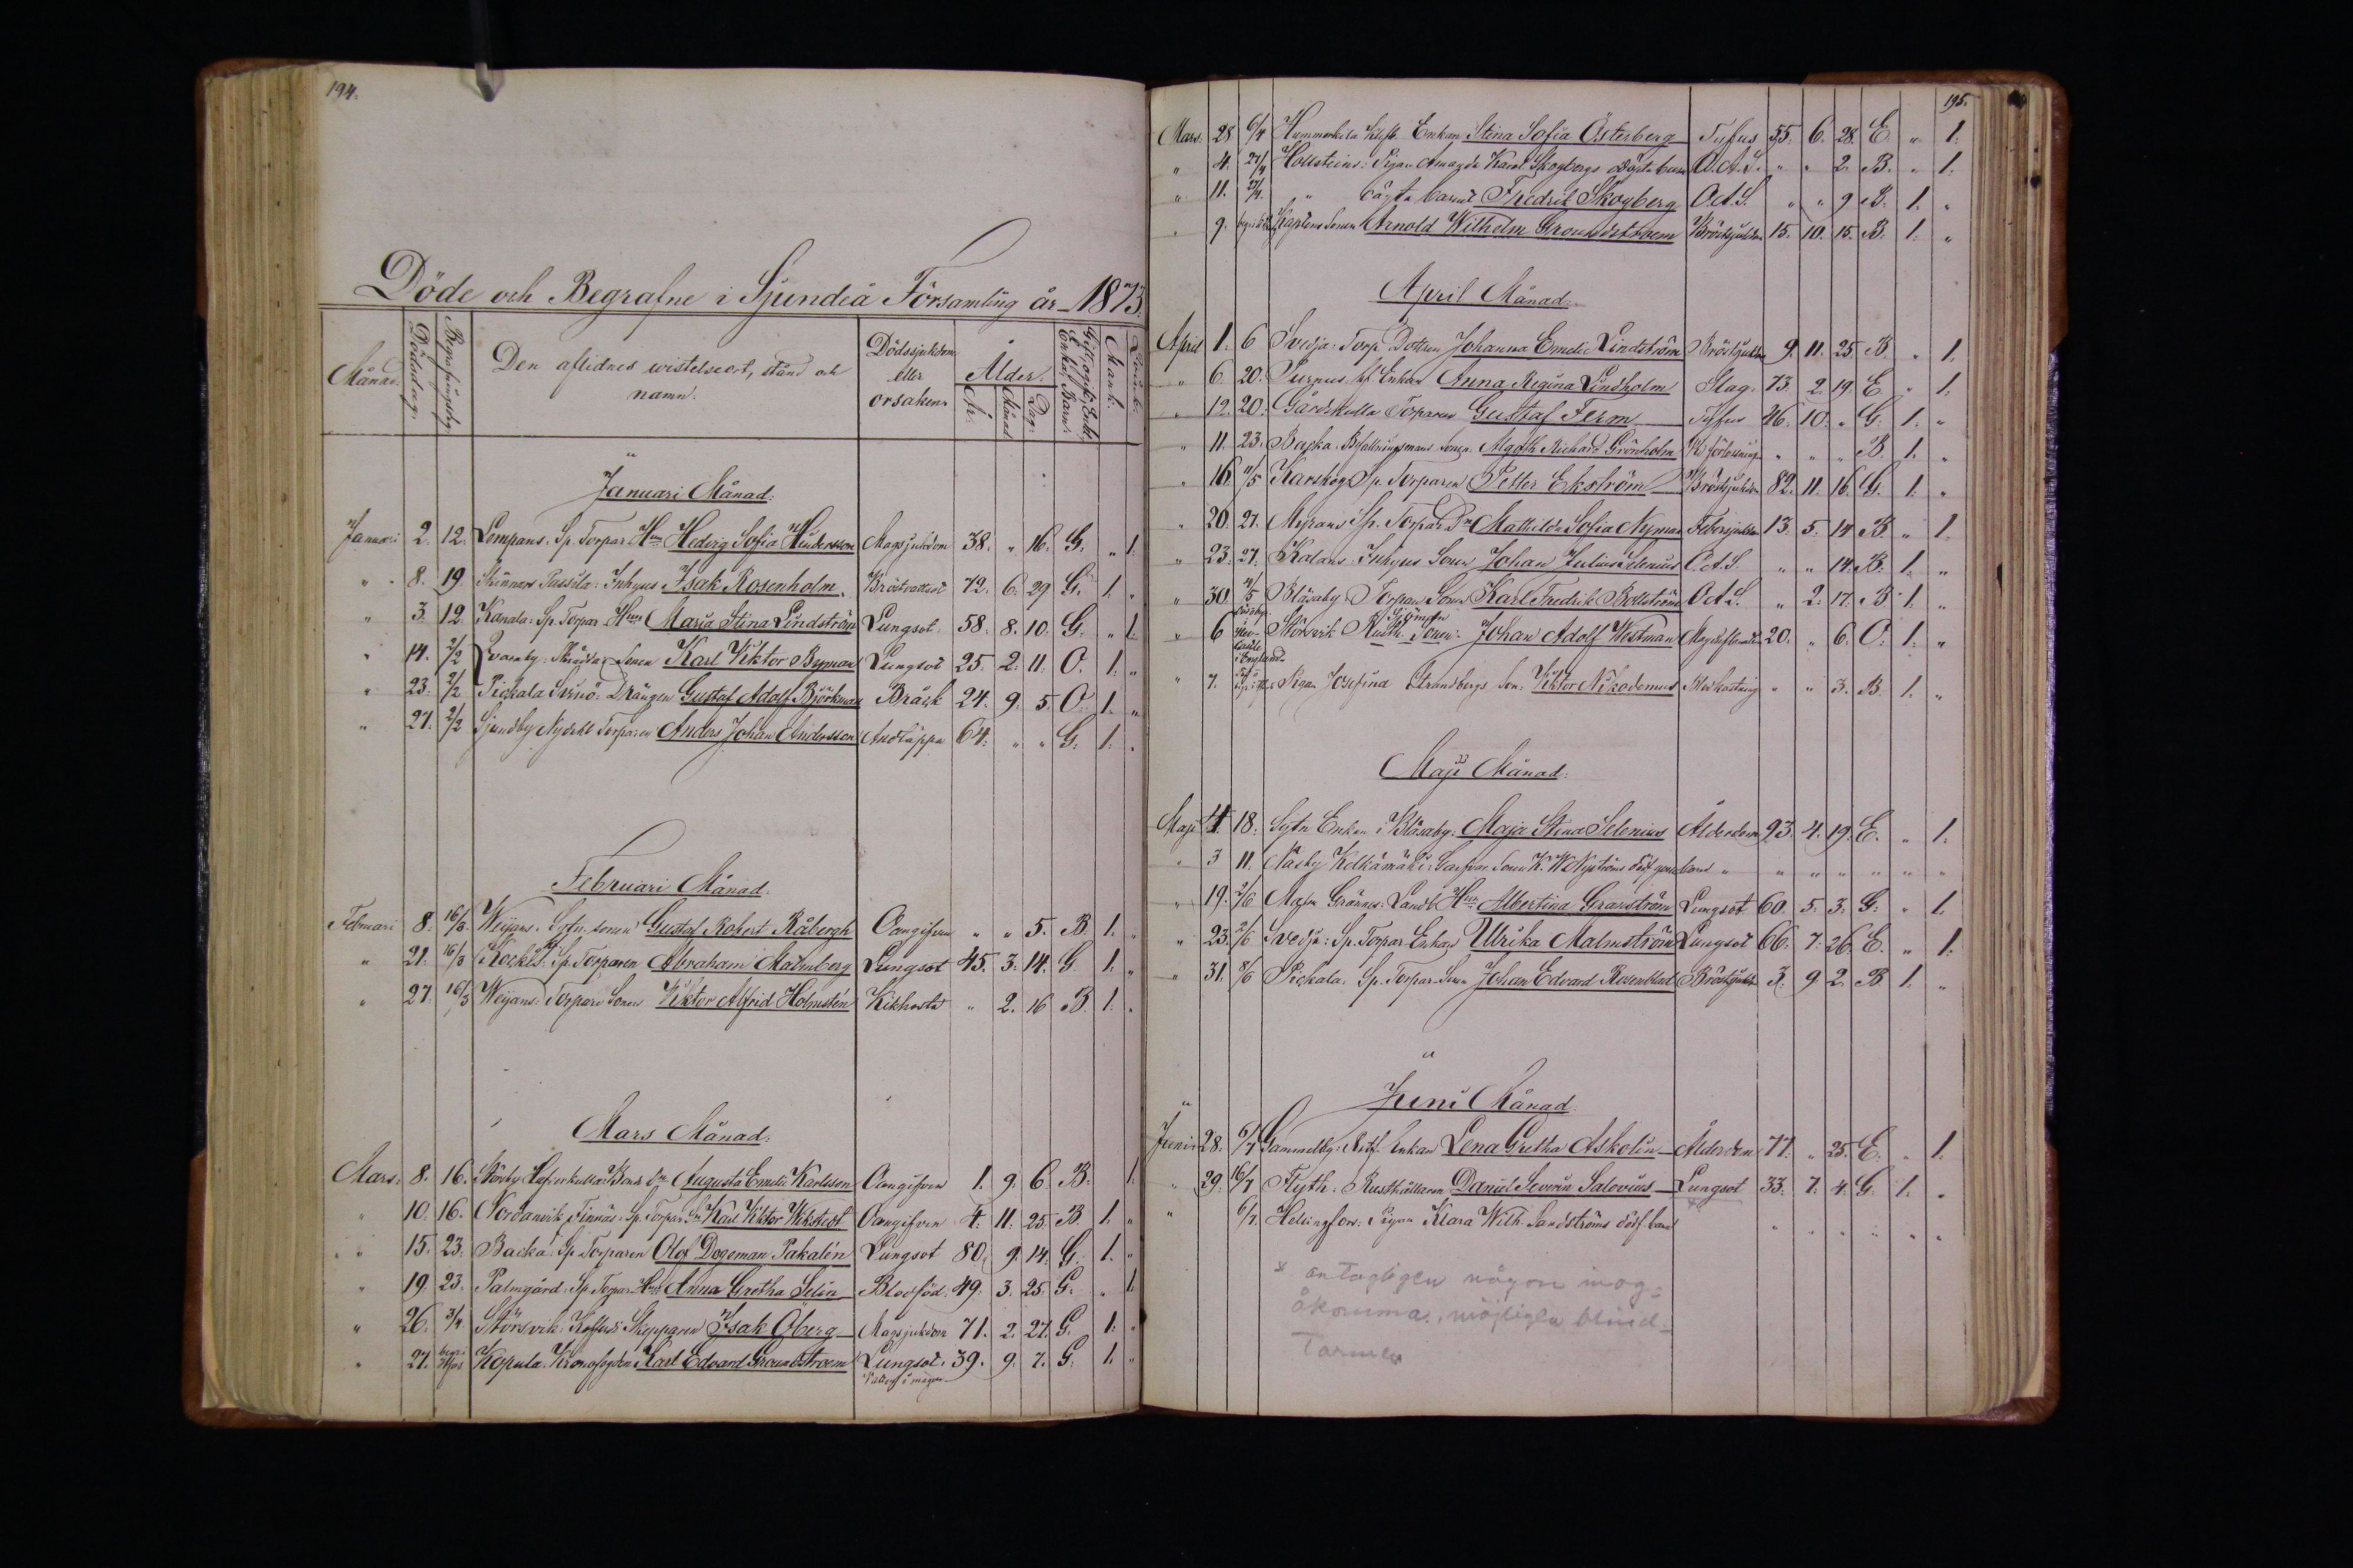 194.
Döde och Begrafne i Sjundeå Församling år 1873.
Månad. Dödsdag. Begrafningsdag. Den aflidnes wistelseort, stånd och namn. Dödssjukdom eller orsaken. Ålder. År. Månad Dag. Gift, Ogift, Enkl. Enka, Barn. Mank. Qvink.
Januari Månad.
Januari 2. 12. Lempans. Sp. Torpar Hun Hedvig Sofia Hindersson Magsjukdom 38. " 16. G. " 1.
" 8. 19. Skinnars Passila: Inhyses Isak Rosenholm. Bröstvattsot 72. 6. 29 G. 1. "
" 3. 12. Kanala: Sp. Torpar Hun Maria Stina Lindström Lungsot. 58. 8. 10. G. " 1.
" 14. 2/2 Qvarnby: Skräddar Sonen Karl Viktor Byman Lungsot 25. 2. 11. O. 1. "
" 23. 2/2 Pickala Svinö: Drängen Gustaf Adolf Björkman Bråck 24. 9. 5. O. 1. "
" 27. 2/2 Sjundby Nydahl Torparen Anders Johan Andersson Andtäppa 64. " " G. 1. "
Februari Månad.
Februari 8. 16/3. Weijans. Sytn. sonen Gustaf Robert Råbergh Oangifven " " 5. B. 1. "
" 21. 16/3 Kockis: Sp. Torparen Abraham Malmberg Lungsot 45. 3. 14. G. 1. "
" 27. 16/3 Weijans: Torpare Sonen Viktor Alfrid Holmstén Kikhosta " 2. 16 B. 1. "
Mars Månad.
Mars. 8. 16. Störsby Bonde Dr Augusta Emilia Karlsson Oangifven 1. 9. 6. B. 1.
" 10. 16. Nordanvik Finnäs: Sp. Torpar Sn Karl Viktor Wikstedt Oangifven 4. 11. 25. B. 1. "
" 15. 23. Backa: Sp. Torparen Olof Dogeman Pakalén Lungsot 80. 9. 14. G. 1. "
" 19. 23. Palmgård: Sp. Torpar Hun Anna Gretha Selin Blodflöd. 49. 3. 25. G. " 1.
" 26. 3/4 Störsvik: Skepparen Isak Öberg Magsjukdom 71. 2. 27. G. 1. "
" 27. Kopula: Kronofogden Karl Edvard Groundstroem Lungsot. 39. 9. 7. G. 1. "
195.
Mars. 28 6/4 Hummerkila Enkan Stina Sofia Österberg Tyfus 55. 6. 28. E " 1.
" 4. 27/4 Hollsteins: Pigan Amanda Karol. Skogbergs oägta barn O.A.S. " " 2. B. " 1.
" 11. 27/4. " oägta barnet Fredrik Skogberg O.A.S. " " 9 B. 1. "
" 9. Kaptens Sonen Arnold Wilhelm Groundstroem Bröstsjukdom 15. 10. 15. B. 1. "
April Månad.
April 1. 6 Svedja: Torp. Dottren Johanna Emelie Lindström Bröstsjukdom 9. 11. 25. B. " 1.
" 6. 20. Purnus. Enkan Anna Regina Lindholm Slag. 73. 2. 19. E. " 1.
" 12. 20. Gårdskulla Torparen Gustaf Ferm Tyfus 46. 10. " G. 1. "
" 11. 23. Backa. Befallningsmans Sonen. Algoth Richard Grönholm förlossning " " " B. 1. "
" 16. 11/5 Karskog: Sp. Torparen Petter Ekström Bröstsjukdom 82. 11. 16. G. 1. "
" 20. 27. Myrans: Sp. Torpar Dr Mathilda Sofia Nyman Febersjukdom 13. 5. 14 B. " 1.
" 23. 27. Kalans: Inhyses Sonen Johan Julius Selenius O.A.S. " " 14. B. 1. "
" 30. 4/5 Blåsaby: Torpare Sonen Karl Fredrik Bollström O.A.S. " 2. 17. B. 1. "
" 6 New-castle i England Störsvik Rusth. Sonen. Sjöman Johan Adolf Westman 20. " 6. O. 1. "
" 7. Pigan Josefina Strandbergs Son: Viktor Nikodemus " " 3. B. 1. "
Maji Månad.
Maji 4 18. Sytn. Enkan i Blåsaby: Maja Stina Selenius Ålderdom 93. 4. 19. E. " 1.
" 3 11. Näsby Kelkämäki: K. W. Nyströms barn " " " " " "
" 19. 2/6 Malm Grännes: Landb. Hun Albertina Granström Lungsot 60. 5. 3. G. " 1.
" 23. 2/6 Svedja: Sp. Torpar Enkan Ulrika Malmström Lungsot 66. 7. 26. E. " 1.
" 31. 8/6 Pickala. Sp. Torpar Son Johan Edvard Rosenblad Bröstsjukd. 3. 9 2. B 1. "
Juni Månad.
Juni 28. 6/7 Gammelby: Enkan Lena Gretha Askolin Ålderdom 77. " 25. E. " 1.
" 29. 16/7 Flyth: Rusthållaren Daniel Severin Salovius Lungsot 33. 7. 4. G. 1. "
" 6/7. Helsingfors: Pigan Klara Wilh. Sandströms dödf. barn " " " " " "
* antagligen någon mag-
åkomma. möjligen blind-
tarmen